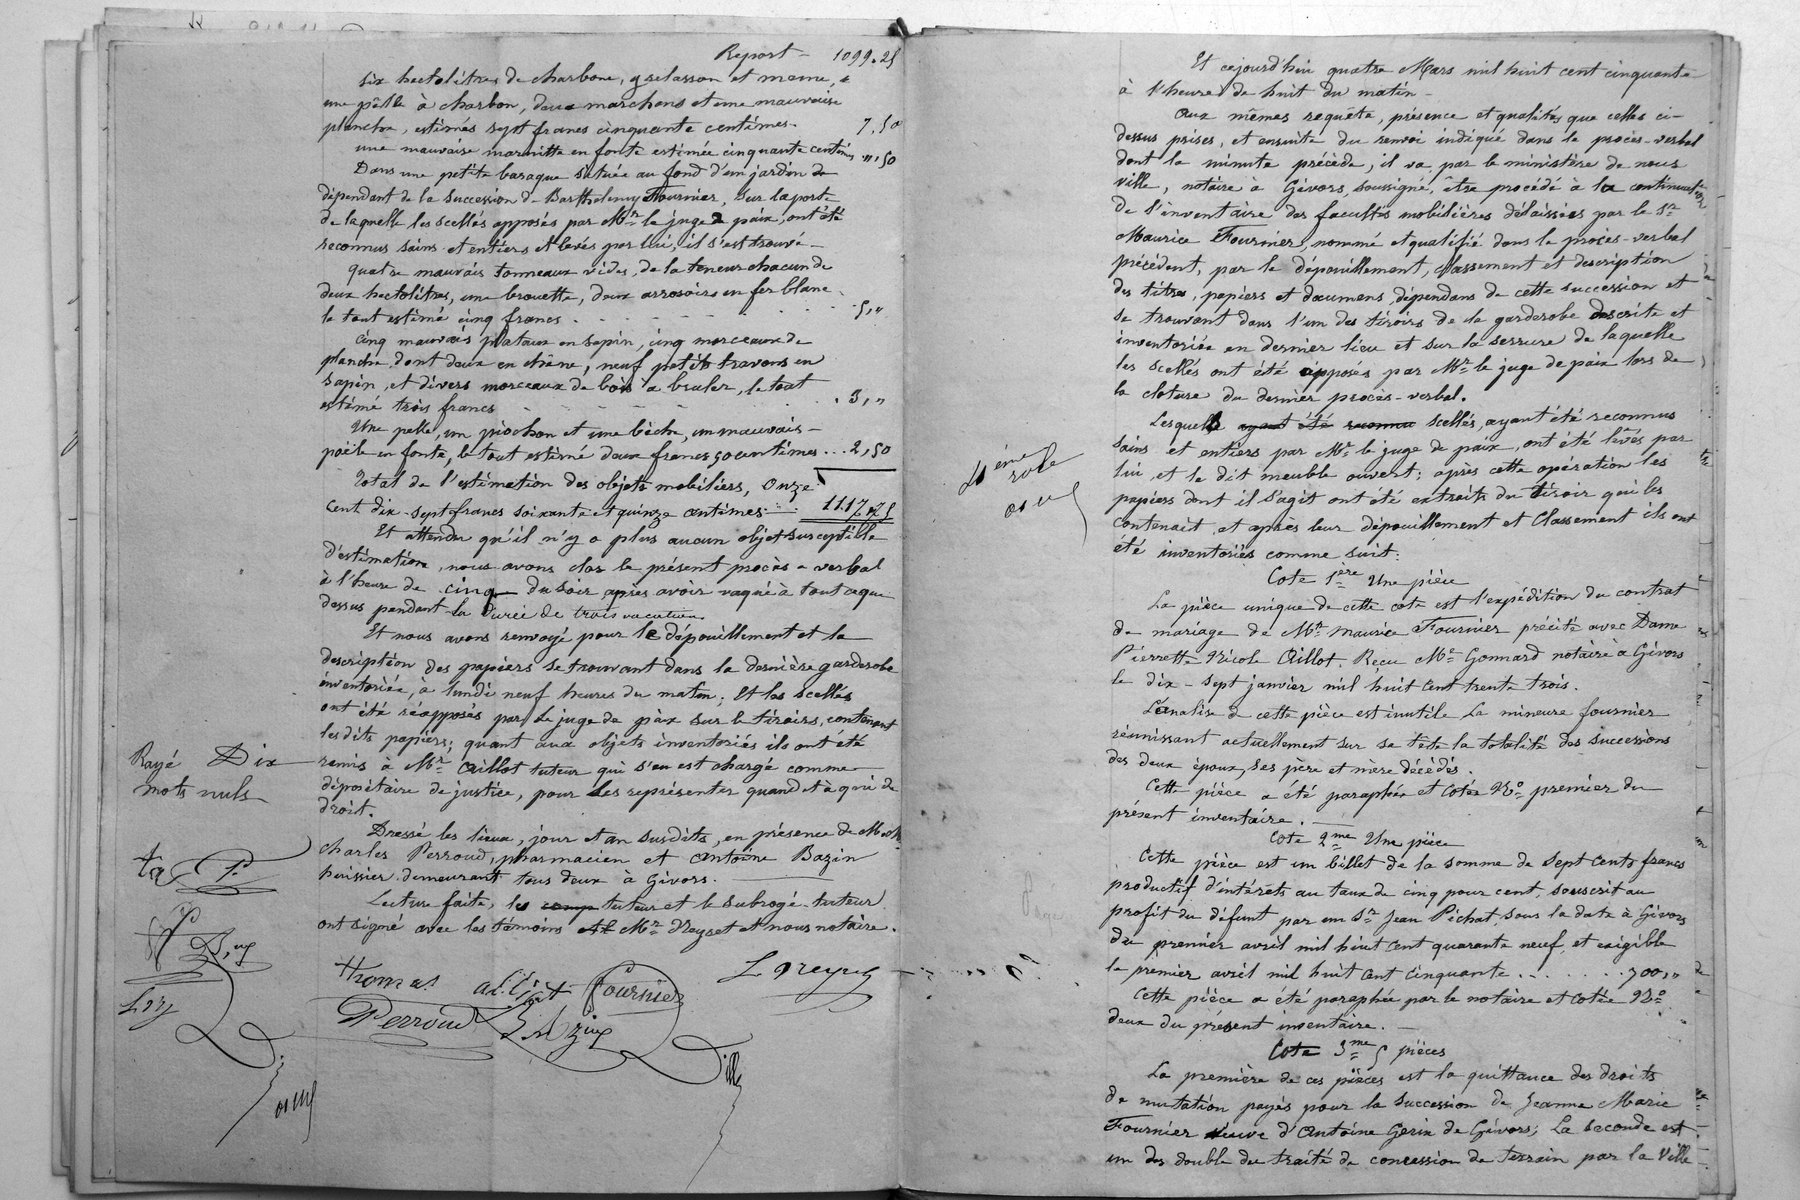 Report – 1099.25
six hectolitres de charbon, gselasson et meme, &
une pelle à charbon, deux marchons et une mauvaise
planche, estimés sept francs cinquante centimes. 7,50
une mauvaise marmitte en fonte estimée cinquante centimes ",50
Dans une petite baraque située au fond d'un jardin de
dépendant de la succession de Barthelemy Fournier, sur la porte
de laquelle les scellés apposés par Mr le juge de paix, ont été
reconnus sains et entiers et levés par lui, il s'est trouvé –
quatre mauvais tonneaux vides, de la teneur chacun de
deux hectolitres, une brouette, deux arrosoirs en fer blanc
le tout estimé cinq francs . . . . . 5,"
cinq mauvais plataux en sapin, cinq morceaux de
planche dont deux en chêne, neuf petits travons en
sapin, et divers morceaux de bois a bruler, le tout
estimé trois francs . . . . . 3,"
Une pelle, un piochon et une bèche, un mauvais –
poële en fonte, le tout estimé deux francs 50 centimes ... 2,50
Total de l'estimation des objets mobiliers, Onze
cent dix-sept francs soixante et quinze centimes . . . 1117,75
Et attendu qu'il n'y a plus aucun objet susceptible
d'estimation, nous avons clos le présent procès-verbal
à l'heure de cinq du soir, après avoir vaqué à tout ce que
dessus pendant la durée de trois vacations.
Et nous avons renvoyé pour le dépouillement et la
description des papiers se trouvant dans la dernière garderobe
inventoriée, à lundi neuf heures du matin; Et les scellés
ont été réapposés par le juge de paix sur le tiroirs, contenant
les dits papiers; quant aux objets inventoriés ils ont été
remis à Mr Aillot tuteur qui s'en est chargé comme
dépositaire de justice, pour les représenter quand et à qui de
droit.
Dressé les lieux, jour et an susdits, en présence de MM
charles Perroud, pharmacien et antoine Bazin
huissier demeurant tous deux à Givors.
Lecture faite, le comp tuteur et le subrogé-tuteur
ont signé avec les témoins et Mr Dreyset et nous notaire.
Rayé Dix
mots nuls
Thomas aillot Fournier
Perroud
Et cejourd'hui quatre Mars mil huit cent cinquante
à l'heure de huit du matin –
Aux mêmes requête, présence et qualités que celles ci-
dessus prises, et ensuite du renvoi indiqué dans le procès-verbal
dont la minute précède, il va par le ministère de nous
ville, notaire à Givors, soussigné, être procédé à la continuation
de l'inventaire des facultés mobilières délaissées par le Sr
Maurice Fournier, nommé et qualifié dans le procès-verbal
précédent, par le dépouillement, classement et description
des titres, papiers et documens, dépendans de cette succession et
se trouvant dans l'un des tiroirs de la garderobe descrite et
inventoriée en dernier lieu et sur la serrure de laquelle
les scellés ont été apposés par Mr le juge de paix lors de
la cloture du dernier procès-verbal.
Lesquels ayant été reconnu scellés, ayant été reconnus
sains et entiers par Mr le juge de paix, ont été lévés par
lui, et le dit meuble ouvert; après cette opération les
papiers dont il s'agit ont été extraits du tiroir qui les
contenait, et après leur dépouillement et classement ils ont
été inventoriés comme suit:
ème
role
Cote 1ère Une pièce
La pièce unique de cette cote est l'expédition du contrat
de mariage de Mr Maurice Fournier précité avec Dame
Pierrette Nicole Aillot. Recu Me Gonnard notaire à Givors
le dix-sept janvier mil huit cent trente trois.
L'analise de cette pièce est inutile la mineure fournier
réunissant actuellement sur sa tête la totalité des successions
des deux époux, ses père et mère décédés.
Cette pièce a été paraphée et cotée No premier du
présent inventaire.
Cote 2me Une pièce
Cette pièce est un billet de la somme de Sept Cents francs
productif d'intérets au taux de cinq pour cent, souscrit au
profit du défunt par un Sr Jean Pichat, sous la date à Givors
du premier avril mil huit cent quarante neuf, et exigible
le premier avril mil huit cent cinquante . . . . . 700,"
Cette pièce a été paraphée par le notaire et cotée No
deux du présent inventaire. –
Cote 3me 5 pièces
La première de ces pièces est la quittance des droits
de mutation payés pour la succession de Jeanne Marie
Fournier veuve d'Antoine Gerin de Givors; La seconde est
un des double du traité de concession de terrain par la Ville